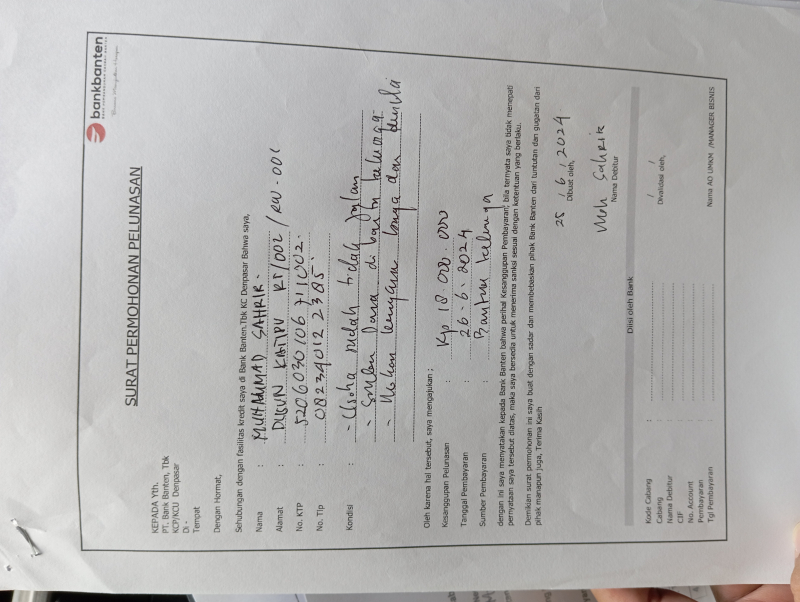 bankbanten
SURAT PERMOHONAN PELUNASAN
KEPADA Yth.
PT. Bank Banten, Tbk
KCP/KCU Denpasar
Di -
Tempat
Dengan Hormat,
Sehubungan dengan fasilitas kredit saya di Bank Banten,Tbk KC Denpasar Bahwa saya,
Nama : MUHAMMAD SAHRIR.
Alamat : DUSUN RT/002 / RW.001
No. KTP : 5206030106711002.
No. Tlp : 082340122385.
Kondisi : - Usaha sudah tidak jalan
- Sumber Dana di bantu keluarga
- Mohon keringanan bunga dan denda
Oleh karena hal tersebut, saya mengajukan :
Kesanggupan Pelunasan : Rp 18.000.000
Tanggal Pembayaran : 26-6-2024
Sumber Pembayaran : Bantuan keluarga
dengan ini saya menyatakan kepada Bank Banten bahwa perihal Kesanggupan Pembayaran, bila ternyata saya tidak menepati
pernyataan saya tersebut diatas, maka saya bersedia untuk menerima sanksi sesuai dengan ketentuan yang berlaku.
Demikian surat permohonan ini saya buat dengan sadar dan membebaskan pihak Bank Banten dari tuntutan dan gugatan dari
pihak manapun juga, Terima Kasih
25 / 6 / 2024.
Dibuat oleh,
Moh Sahrir
Nama Debitur
Diisi oleh Bank
Kode Cabang :
Cabang
Nama Debitur
CIF
No. Account
Pembayaran
Tgl Pembayaran :
/ /
Divalidasi oleh,
Nama AO UMKM /MANAGER BISNIS